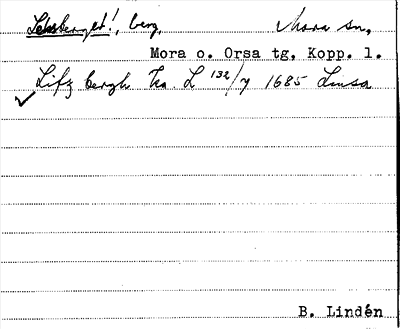 Leksberget!, berg, Mora sn,
Mora o. Orsa tg, Kopp. l.
Lifz bergh Ka. L 132/7 1685 Linsa
B. Lindén